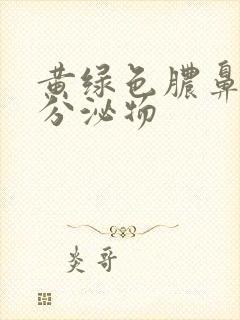 黄绿色脓鼻
分泌物
炎哥